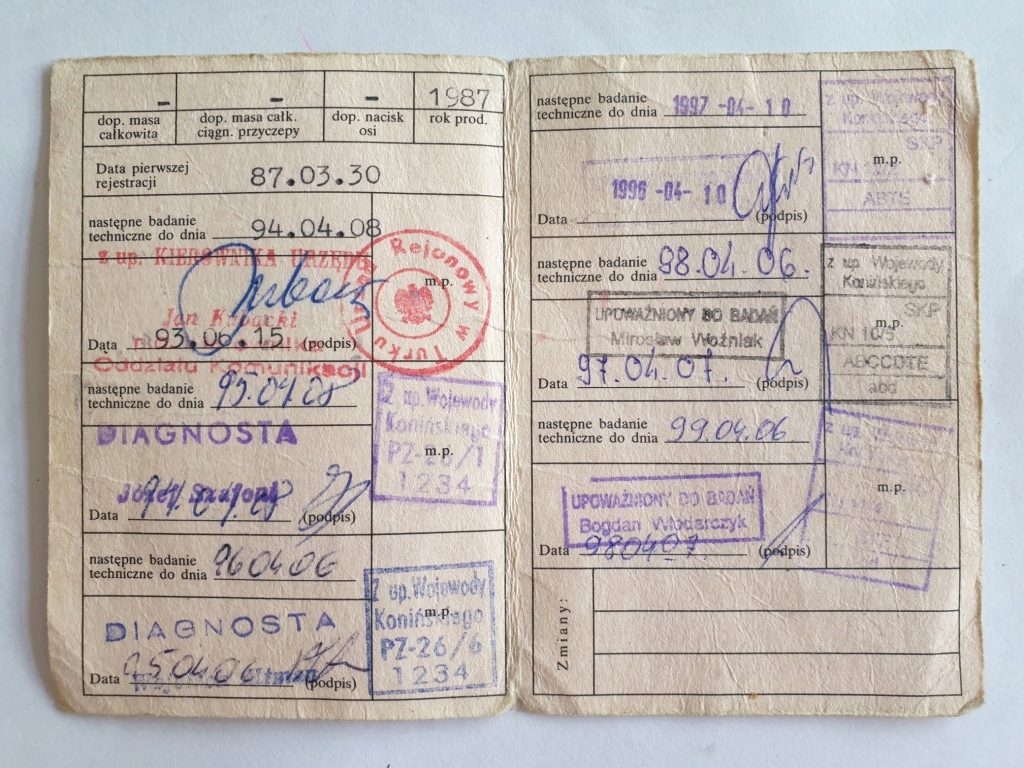 - - - 1987
dop. masa całkowita dop. masa całk. ciągn. przyczepy dop. nacisk osi rok prod.
Data pierwszej
rejestracji 87.03.30
następne badanie
techniczne do dnia 94.04.08
z up. KIEROWNIKA URZĘDU
Urząd Rejonowy w Turku
m.p.
Jan
Data 93.06.15 (podpis)
Oddziału Komunikacji
następne badanie
techniczne do dnia 95.04.28
DIAGNOSTA
Z up. Wojewody
Konińskiego
PZ-26/1
1234
m.p.
Józef
Data 94.04.28 (podpis)
następne badanie
techniczne do dnia 960406
DIAGNOSTA
Z up. Wojewody
Konińskiego
PZ-26/6
1234
m.p.
Data 950406 (podpis)
następne badanie
techniczne do dnia 1997 -04- 10
z up. Wojewody
Konińskiego
SKP
KN
ABTE
m.p.
1996 -04- 10
Data (podpis)
następne badanie
techniczne do dnia 98.04.06.
z up. Wojewody
Konińskiego
SKP
KN 10/5
ABCCDTE
abd
m.p.
UPOWAŻNIONY DO BADAŃ
Mirosław Woźniak
Data 97.04.07. (podpis)
następne badanie
techniczne do dnia 99.04.06
z up.
m.p.
UPOWAŻNIONY DO BADAŃ
Bogdan Włodarczyk
Data 980407. (podpis)
Zmiany: